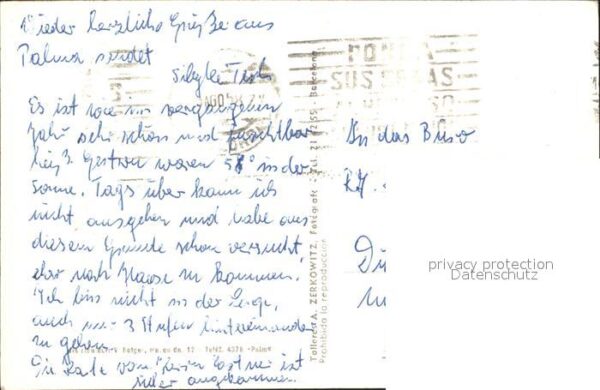 Wieder herzliche Grüße aus
Palma sendet
Es ist wie im vergangenen
Jahr sehr schön und furchtbar
heiß. Gestern waren 58° in der
Sonne. Tags über kann ich
nicht ausgehen und habe aus
diesem Grunde schon versucht,
eher nach Hause zu kommen.
Ich bin nicht in der Lage,
auch nur 3 Stufen hintereinander
zu gehen.
Die Karte vom ist
wieder angekommen.
SUS
An das Büro
Talleres A. ZERKOWITZ, Fotógrafo - Tel. 21 42 55 - Barcelona
Prohibida la reproducción
privacy protection
Datenschutz